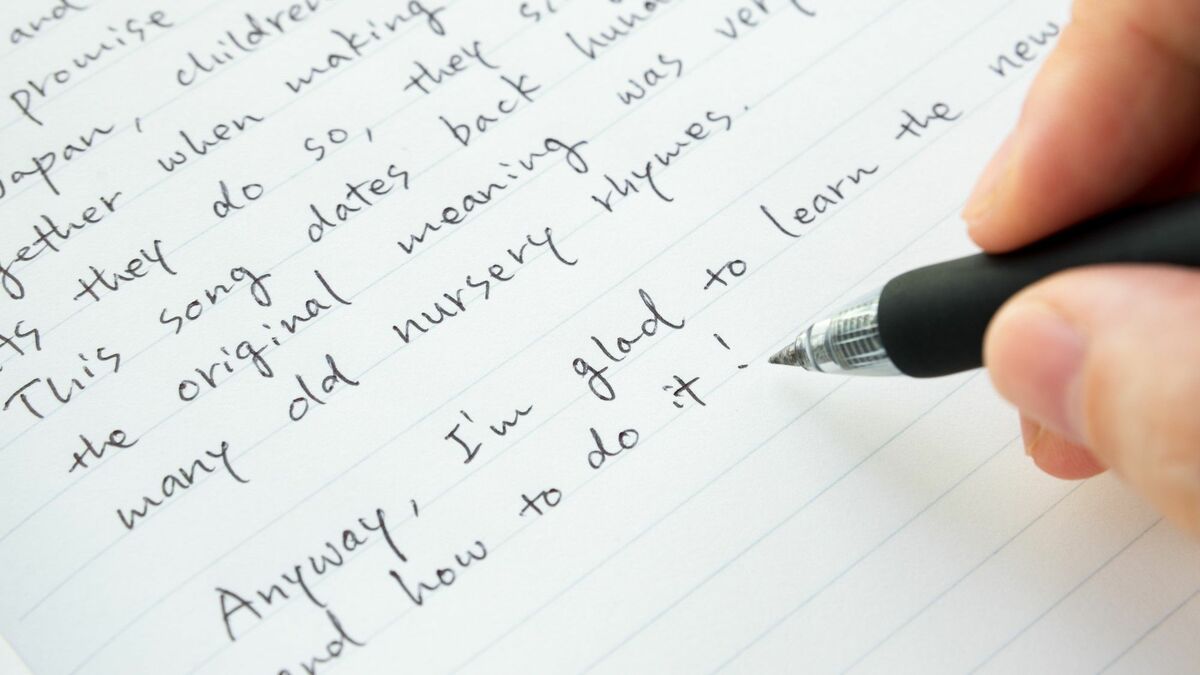 and
promise
Japan, children
together when making
As they do so, they
This song dates back
the original meaning was very
many old nursery rhymes.
Anyway, I'm glad to learn the new
and how to do it!